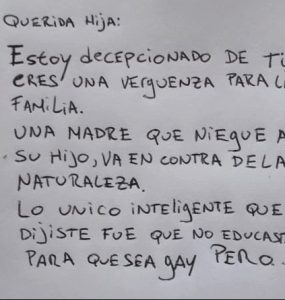 QUERIDA HIJA:
EStoy DECEPCIONADO DE TI
ERES UNA VERGUENZA PARA L
FAMILIA.
UNA MADRE QUE NIEGUE A
SU HIJO, VA EN CONTRA DE LA
NATURALEZA.
LO UNICO INTELIGENTE QUE
DIJISTE FUE QUE NO EDUCAST
PARA QUE SEA GAY PERO